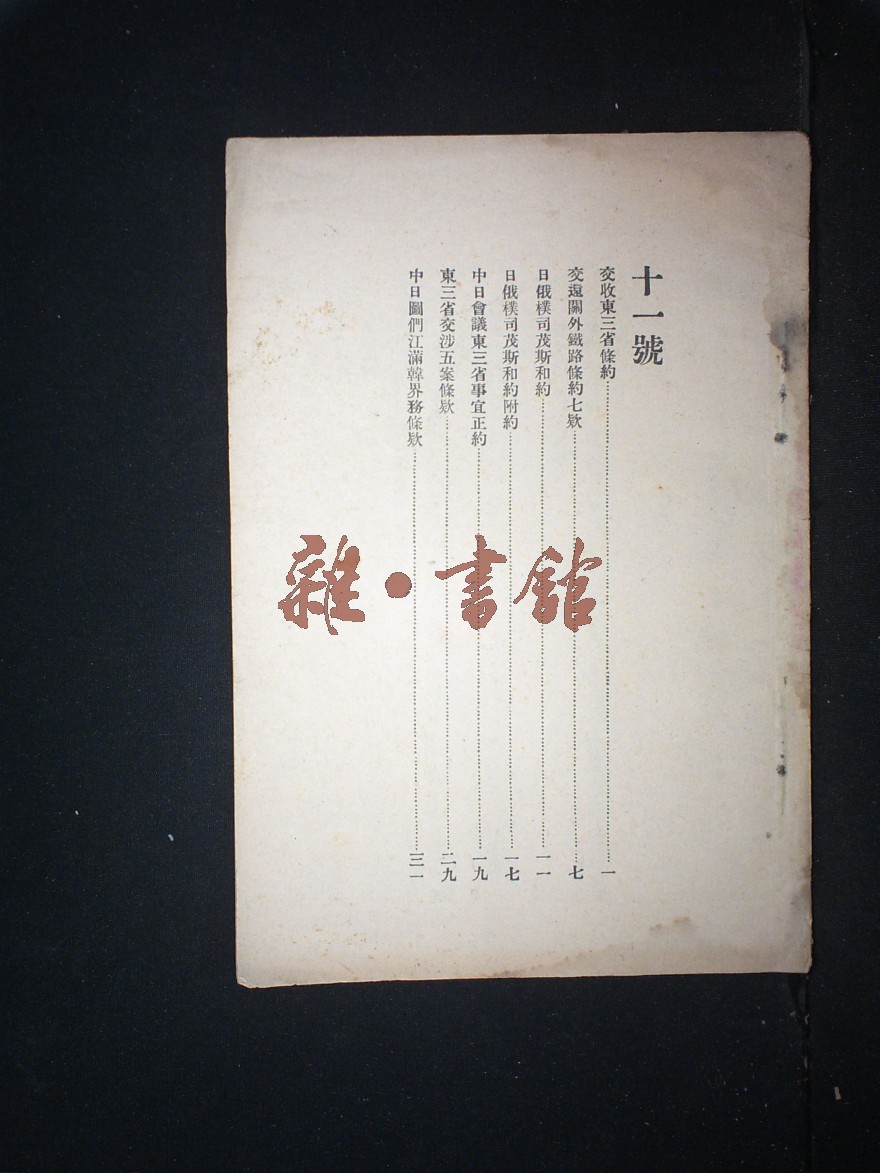 十一號
交收東三省條約……一
交還關外鐵路條約七欵……七
日俄樸司茂斯和約……一一
日俄樸司茂斯和約附約……一七
中日會議東三省事宜正約……一九
東三省交涉五案條欵……二九
中日圖們江滿韓界務條欵……三一
雜·書館